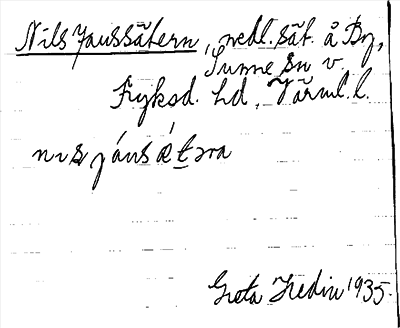 Nils Janssätern, nedl. sät. å By,
Sunne sn v.
Fryksd. hd, Värml. l.
Greta Hedin 1935.